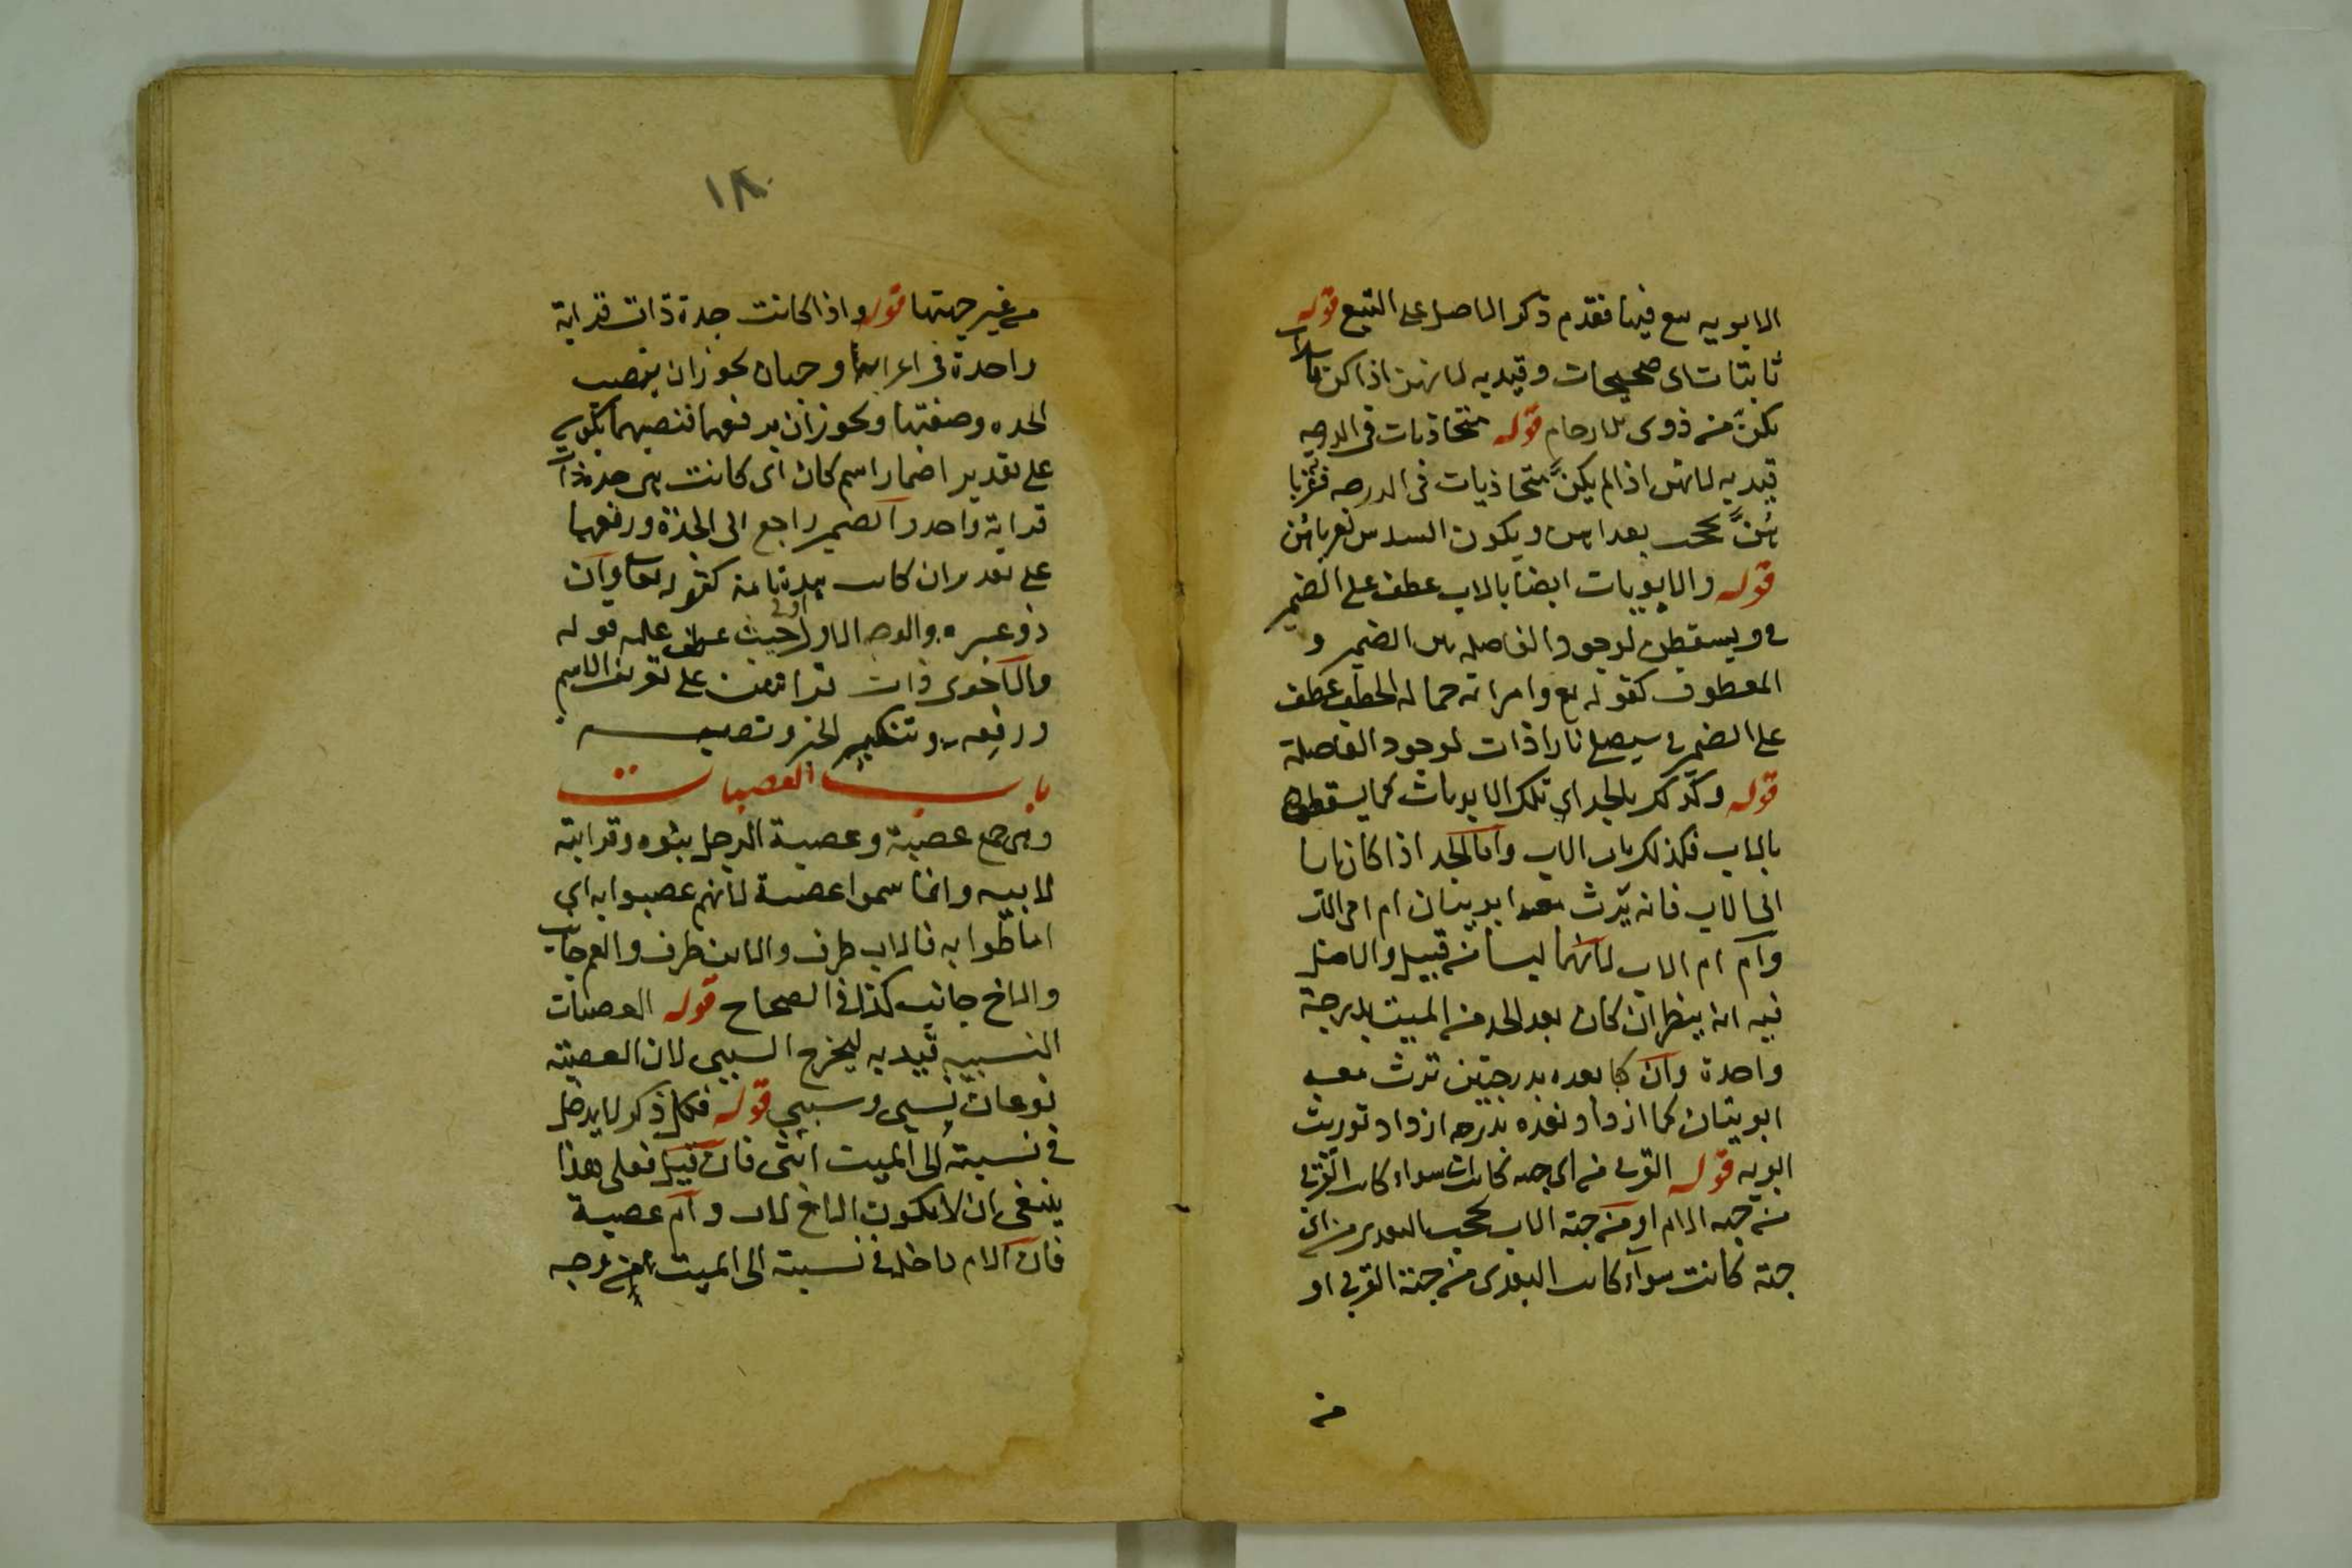 الابويه تبع فيها فقدم ذكر الاصل على التبع قوله
ثابتات اى صحيحات وقيد به لانهن اذا كن فاسدات
يكن من ذوى الارحام قوله متحاذيات فى الدرجه
قيد به لانهن اذا لم يكنّ متحاذيات فى الدرجه فقربا
هنّ تحجب بعداهن ويكون السدس لقرباهن
قوله والابويات ايضا بالاب عطف على الضمير
فى ويسقطن لوجود الفاصله بين الضمير و
المعطوف كقوله تع وامراته حمالة الحطب عطف
على الضمير فى سيصلى نارا ذات لوجود الفاصلة
قوله وكذلك بالجد اى تلك الابويات كما يسقطن
بالاب فكذلك باب الاب واما الجد اذا كان ابا
اب الاب فانه يرث معه ابويتان ام ام الاب
وام ام الاب لانهما ليسا من قبيل والاصل
فيه ان ينظر ان كان بعد الجد من الميت بدرجة
واحدة وان كا بعده بدرجتين ترث معه
ابويتان كما ازداد بعده بدرجه ازداد توريث
ابويه قوله القربى من اى جهه كانت سواء كانت القربى
من جهه الام او من جهة الاب تحجب البعدى من اى
جهة كانت سواء كانت البعدى من جهة القربى او
من
١٨٠
من غير جهتها قوله واذا كانت جدة ذات قرابة
واحدة فى اعرابها وجهان يجوز ان ينصب
الجده وصفتها ويجوز ان يرفعهما فنصبهما يكون
على تقدير اضمار اسم كان اى كانت هى جدة ذات
قرابة واحده والضمير راجع الى الجدة ورفعهما
على تقدير ان كانت تامة كقوله تعا وان
ذو عسره والوجه الاول اولى حيث عطف عليه قوله
والاخرى ذات قرابتين على تعريف الاسم
ورفعه وتنكير الخبر ونصبه
باب العصبات
وهى جمع عصبة وعصبة الرجل بنوه وقرابته
لابيه وانما سموا عصبة لانهم عصبوا به اى
احاطوا به فالاب طرف والابن طرف والعم جانب
والاخ جانب كذا فى الصحاح قوله العصبات
النسبيه قيد به ليخرج السببى لان العصبة
نوعان نسبى وسببى قوله فكل ذكر لا يدخل
فى نسبته الى الميت انثى فان قيل فعلى هذا
ينبغى ان لا يكون الاخ لاب وام عصبة
فان الام داخله فى نسبته الى الميت من وجه